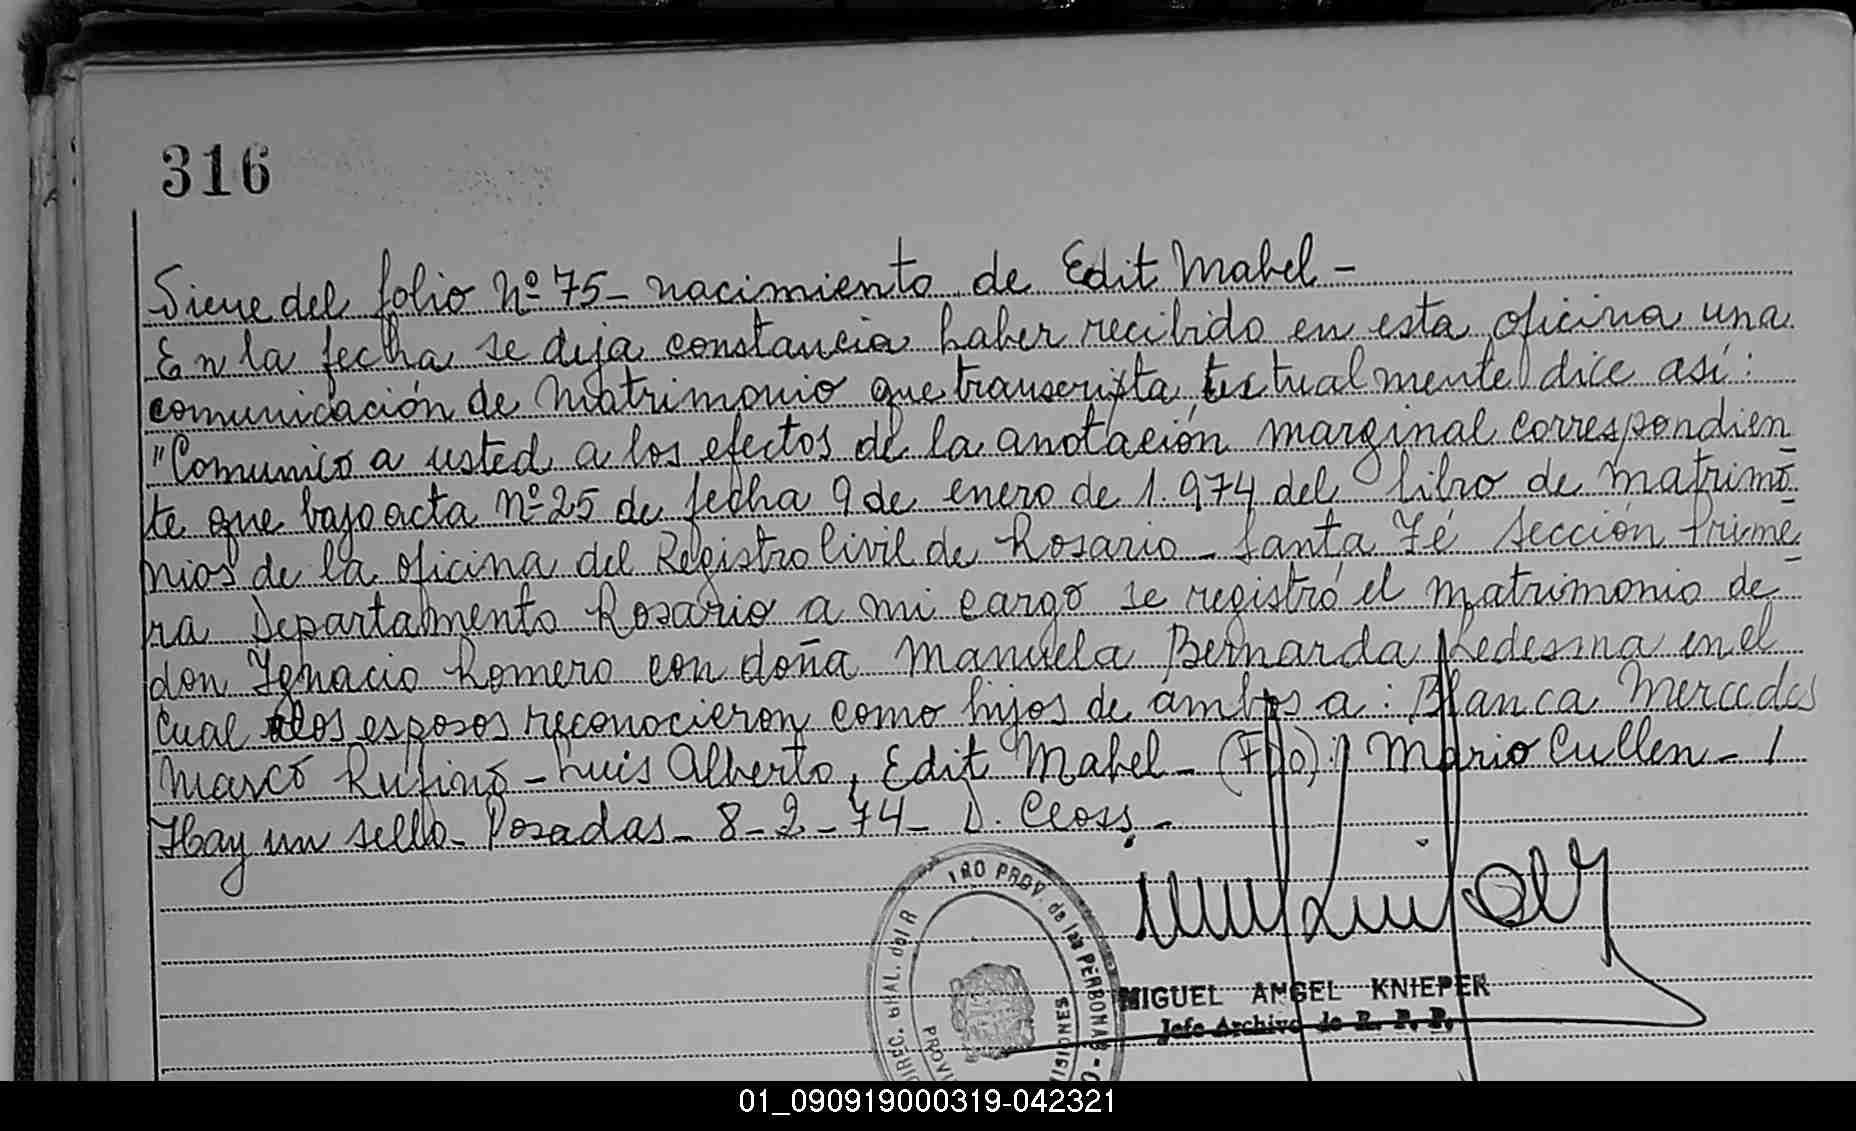 316
Viene del folio Nº 75 - nacimiento de Edit Mabel -
En la fecha se deja constancia haber recibido en esta oficina una
comunicación de Matrimonio que transcripta, textualmente dice así:
"Comunico a usted a los efectos de la anotación marginal correspondien
te que bajo acta Nº 25 de fecha 9 de enero de 1.974 del libro de matrimo
nios de la oficina del Registro Civil de Rosario - Santa Fé Sección Prime
ra Departamento Rosario a mi cargo se registró el matrimonio de
don Ignacio Romero con doña Manuela Bernarda Ledesma en el
cual los esposos reconocieron como hijos de ambos a: Blanca Mercedes
Marco Rufino - Luis Alberto, Edit Mabel - (Fdo): Mario Cullen - /
Hay un sello - Posadas - 8 - 2 - 74 - D. Closs. -
MIGUEL ANGEL KNIEPER
Jefe Archivo de R. P. P.
DIREC. GRAL. del R PROV. de las PERSONAS
01_090919000319-042321